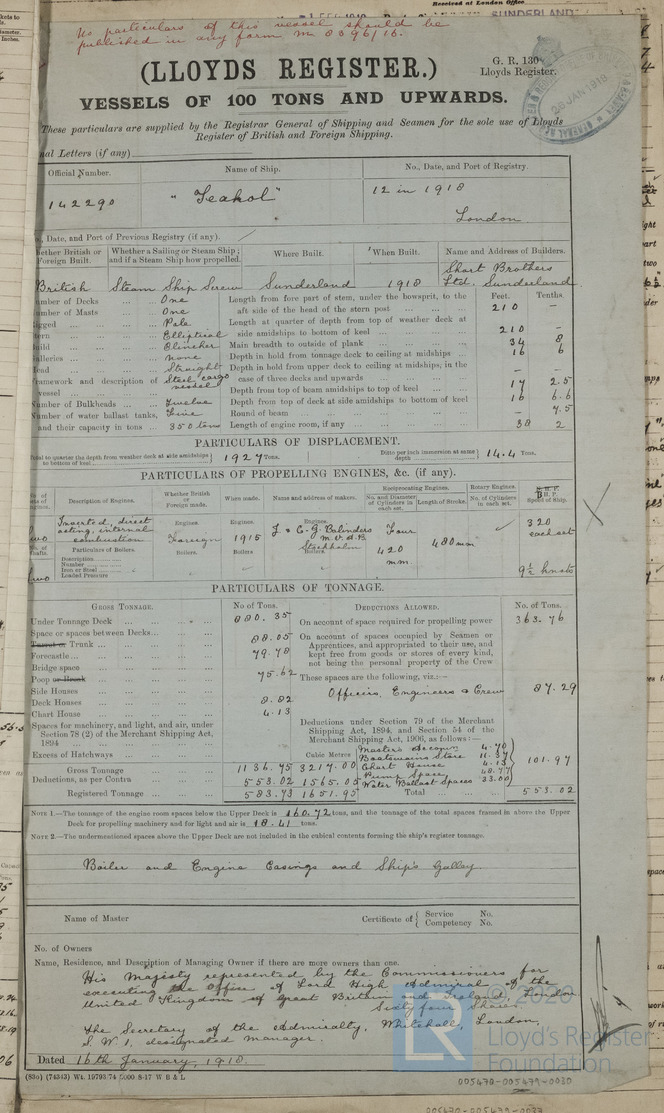 Received at London Office
SUNDERLAND
No particulars of this vessel should be
published in any form M. 8396/16.
(LLOYDS REGISTER.)
G. R. 130
Lloyds Register.
VESSELS OF 100 TONS AND UPWARDS.
28 JAN 1918
These particulars are supplied by the Registrar General of Shipping and Seamen for the sole use of Lloyds
Register of British and Foreign Shipping.
nal Letters (if any)
Official Number. Name of Ship. No., Date, and Port of Registry.
142290 "Teakol" 12 in 1918
London
., Date, and Port of Previous Registry (if any).
hether British or Foreign Built. Whether a Sailing or Steam Ship; and if a Steam Ship how propelled. Where Built. When Built. Name and Address of Builders.
British Steam Ship Screw Sunderland 1918 Short Brothers
Ltd. Sunderland
umber of Decks One
umber of Masts One
igged Pole
tern Elliptical
uild Clincher
alleries none
ead Straight
ramework and description of vessel Steel cargo vessel
Number of Bulkheads Twelve
Number of water ballast tanks, Nine
and their capacity in tons 350 tons
Feet. Tenths.
Length from fore part of stem, under the bowsprit, to the
aft side of the head of the stern post 210 –
Length at quarter of depth from top of weather deck at
side amidships to bottom of keel 210 –
Main breadth to outside of plank 34 8
Depth in hold from tonnage deck to ceiling at midships 16 6
Depth in hold from upper deck to ceiling at midships, in the
case of three decks and upwards – –
Depth from top of beam amidships to top of keel 17 2.5
Depth from top of deck at side amidships to bottom of keel 16 6.6
Round of beam – 7.5
Length of engine room, if any 38 2
PARTICULARS OF DISPLACEMENT.
Total to quarter the depth from weather deck at side amidships to bottom of keel 1927 Tons. Ditto per inch immersion at same depth 14.4 Tons.
PARTICULARS OF PROPELLING ENGINES, &c. (if any).
Description of Engines. Whether British or Foreign made. When made. Name and address of makers. Reciprocating Engines. Rotary Engines.
No. and Diameter of Cylinders in each set. Length of Stroke. No. of Cylinders in each set. Speed of Ship.
Two Inverted, direct
acting, internal
combustion
Engines. Foreign Engines. 1915 Engines. J & C. G. Bolinders
M. V. A. B.
Stockholm
Four
420
mm
480 mm
320
each set
9½ knots
No. of Shafts. Particulars of Boilers. Boilers. Boilers Boilers
Description
Number
Iron or Steel
Loaded Pressure
Two
PARTICULARS OF TONNAGE.
GROSS TONNAGE. No of Tons. DEDUCTIONS ALLOWED. No. of Tons.
Under Tonnage Deck 880.35
Space or spaces between Decks
Turret or Trunk 88.05
Forecastle 79.78
Bridge space
Poop or Break 75.62
Side Houses
Deck Houses 8.82
Chart House 4.13
Spaces for machinery, and light, and air, under
Section 78 (2) of the Merchant Shipping Act,
1894
Excess of Hatchways
Cubic Metres
Gross Tonnage 1136.75 3217.00
Deductions, as per Contra 553.02 1565.05
Registered Tonnage 583.73 1651.95
On account of space required for propelling power 363.76
On account of spaces occupied by Seamen or
Apprentices, and appropriated to their use, and
kept free from goods or stores of every kind,
not being the personal property of the Crew
These spaces are the following, viz.:—
Officers, Engineers & Crew 87.29
Deductions under Section 79 of the Merchant
Shipping Act, 1894, and Section 54 of the
Merchant Shipping Act, 1906, as follows:—
Master's Accom 4.70
Boatswains Store 11.37
Chart House 4.13
Pump Space 48.77
Water Ballast Spaces 33.00
101.97
Total 553.02
NOTE 1.—The tonnage of the engine room spaces below the Upper Deck is 160.72 tons, and the tonnage of the total spaces framed in above the Upper
Deck for propelling machinery and for light and air is 18.41 tons.
NOTE 2.—The undermentioned spaces above the Upper Deck are not included in the cubical contents forming the ship's register tonnage.
Boiler and Engine Casings and Ship's Galley
Name of Master Certificate of Service No.
Competency No.
No. of Owners
Name, Residence, and Description of Managing Owner if there are more owners than one.
His Majesty represented by the Commissioners for
executing the Office of Lord High Admiral of the
United Kingdom of Great Britain and Ireland, London
Sixty four Shares
The Secretary of the Admiralty, Whitehall, London,
S. W. 1, designated manager.
Dated 16th January, 1918.
(830) (74343) Wt. 19793/74 5000 8-17 W B & L
LR
© 2020
Lloyd's Register
Foundation
005470-005479-0030